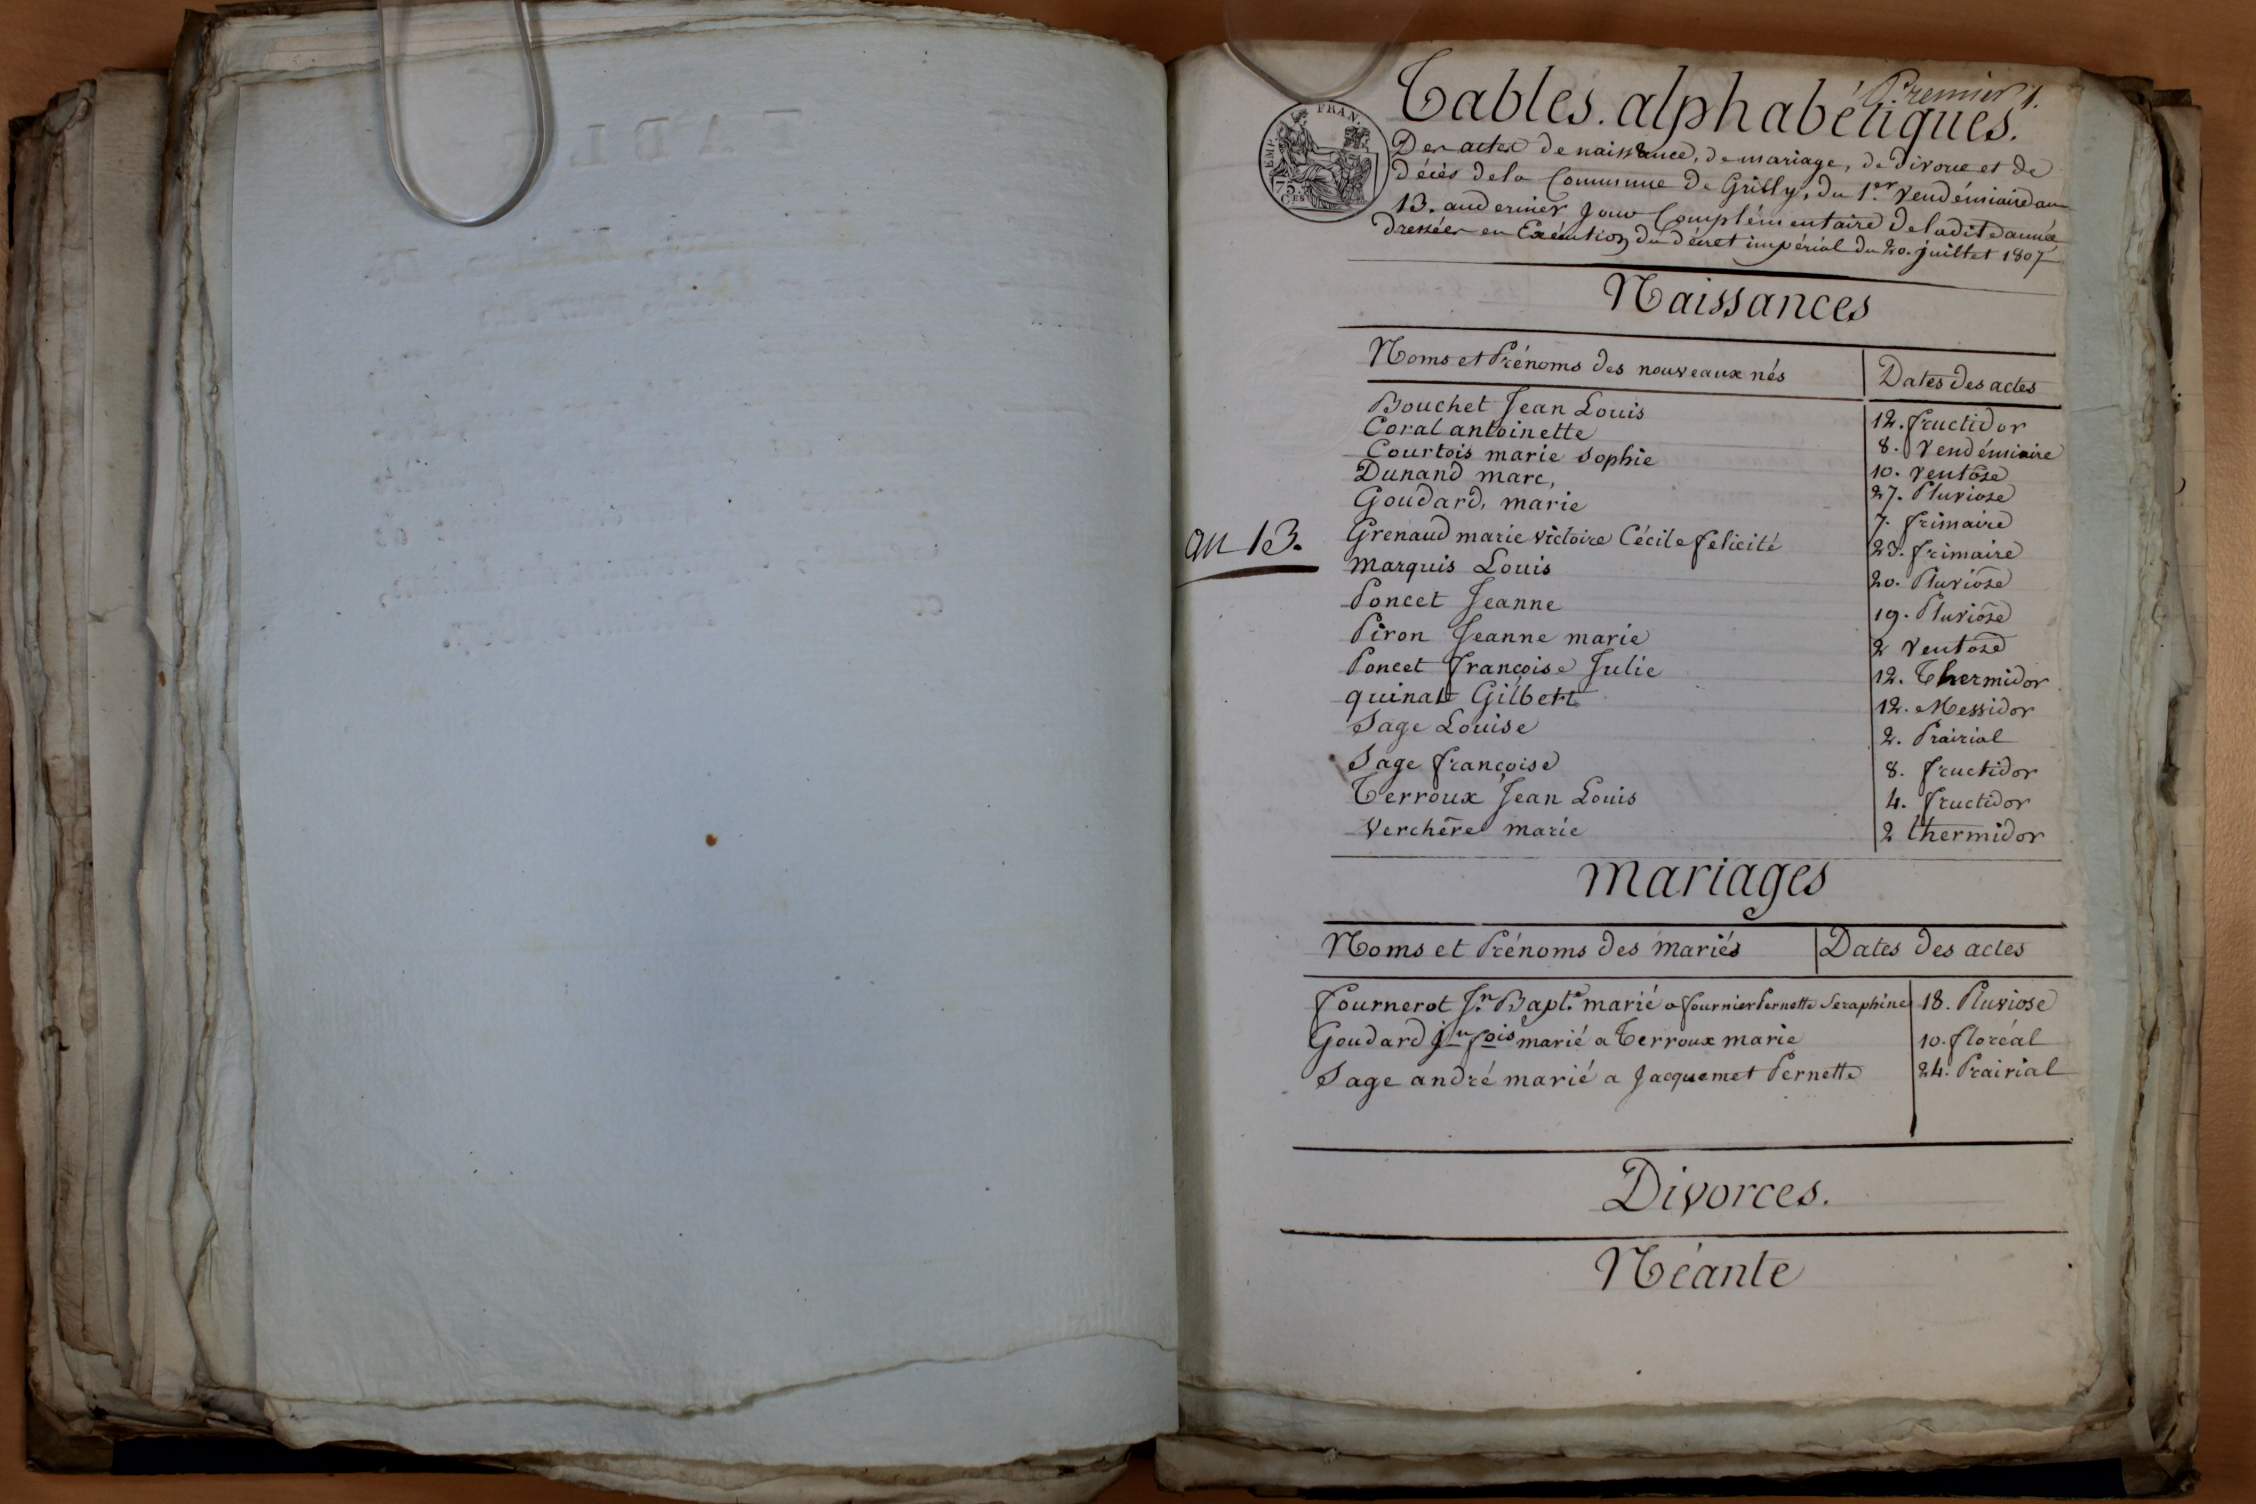 Premier 1.
Tables. alphabétiques.
EMP. FRAN.
75.
C.ES
Des actes de naissance, de mariage, de divorce et de
décès dela Commune de Grilly, du 1.er Vendémiaire an
13. au dernier Jour Complémentaire de ladite année
dressées en Exécution du décret impérial du 20. juillet 1807
Naissances
Noms et Prénoms des nouveaux nés | Dates des actes
Bouchet Jean Louis | 12. fructidor
Coral antoinette | 8. Vendémiaire
Courtois marie sophie | 10. ventose
Dunand marc, | 27. Pluviose
Goudard, marie | 7. frimaire
Grenaud marie victoire Cécile felicité | 23. frimaire
an 13.
Marquis Louis | 20. Pluviose
Poncet Jeanne | 19. Pluviose
Piron Jeanne marie | 2 Ventose
Poncet françoise Julie | 12. Thermidor
quinat Gilbert | 12. Messidor
Sage Louise | 2. Prairial
Sage françoise | 8. fructidor
Terroux Jean Louis | 4. fructidor
Verchère marie | 2 thermidor
Mariages
Noms et Prénoms des mariés | Dates des actes
fournerot J.n Bapt.e marié a fournier Pernette Seraphine | 18. Pluviose
Goudard jn fois marié a Terroux marie | 10. floréal
Sage andré marié a Jacquemet Pernette | 24. Prairial
Divorces.
Néante